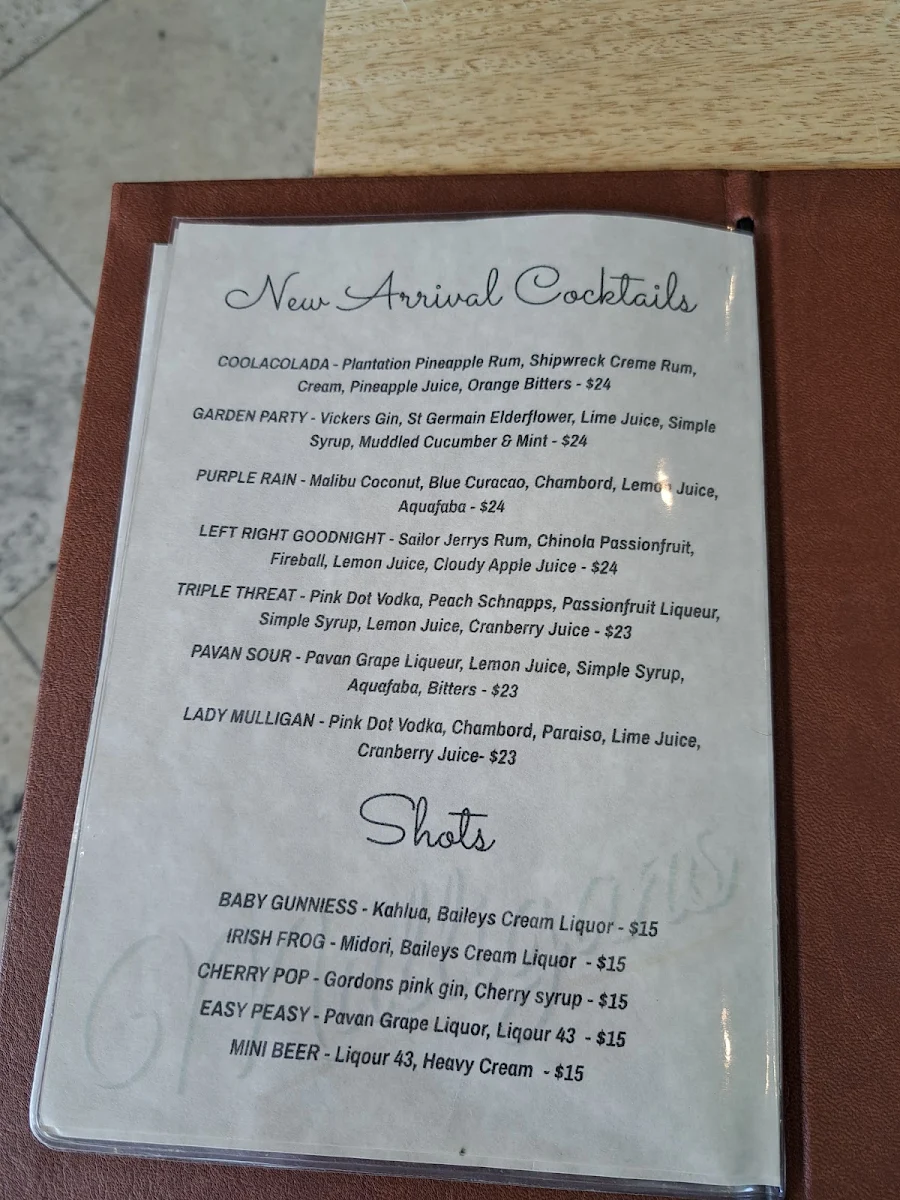 New Arrival Cocktails
COOLACOLADA - Plantation Pineapple Rum, Shipwreck Creme Rum,
Cream, Pineapple Juice, Orange Bitters - $24
GARDEN PARTY - Vickers Gin, St Germain Elderflower, Lime Juice, Simple
Syrup, Muddled Cucumber & Mint - $24
PURPLE RAIN - Malibu Coconut, Blue Curacao, Chambord, Lemon Juice,
Aquafaba - $24
LEFT RIGHT GOODNIGHT - Sailor Jerrys Rum, Chinola Passionfruit,
Fireball, Lemon Juice, Cloudy Apple Juice - $24
TRIPLE THREAT - Pink Dot Vodka, Peach Schnapps, Passionfruit Liqueur,
Simple Syrup, Lemon Juice, Cranberry Juice - $23
PAVAN SOUR - Pavan Grape Liqueur, Lemon Juice, Simple Syrup,
Aquafaba, Bitters - $23
LADY MULLIGAN - Pink Dot Vodka, Chambord, Paraiso, Lime Juice,
Cranberry Juice- $23
Shots
BABY GUNNIESS - Kahlua, Baileys Cream Liquor - $15
IRISH FROG - Midori, Baileys Cream Liquor - $15
CHERRY POP - Gordons pink gin, Cherry syrup - $15
EASY PEASY - Pavan Grape Liquor, Liqour 43 - $15
MINI BEER - Liqour 43, Heavy Cream - $15